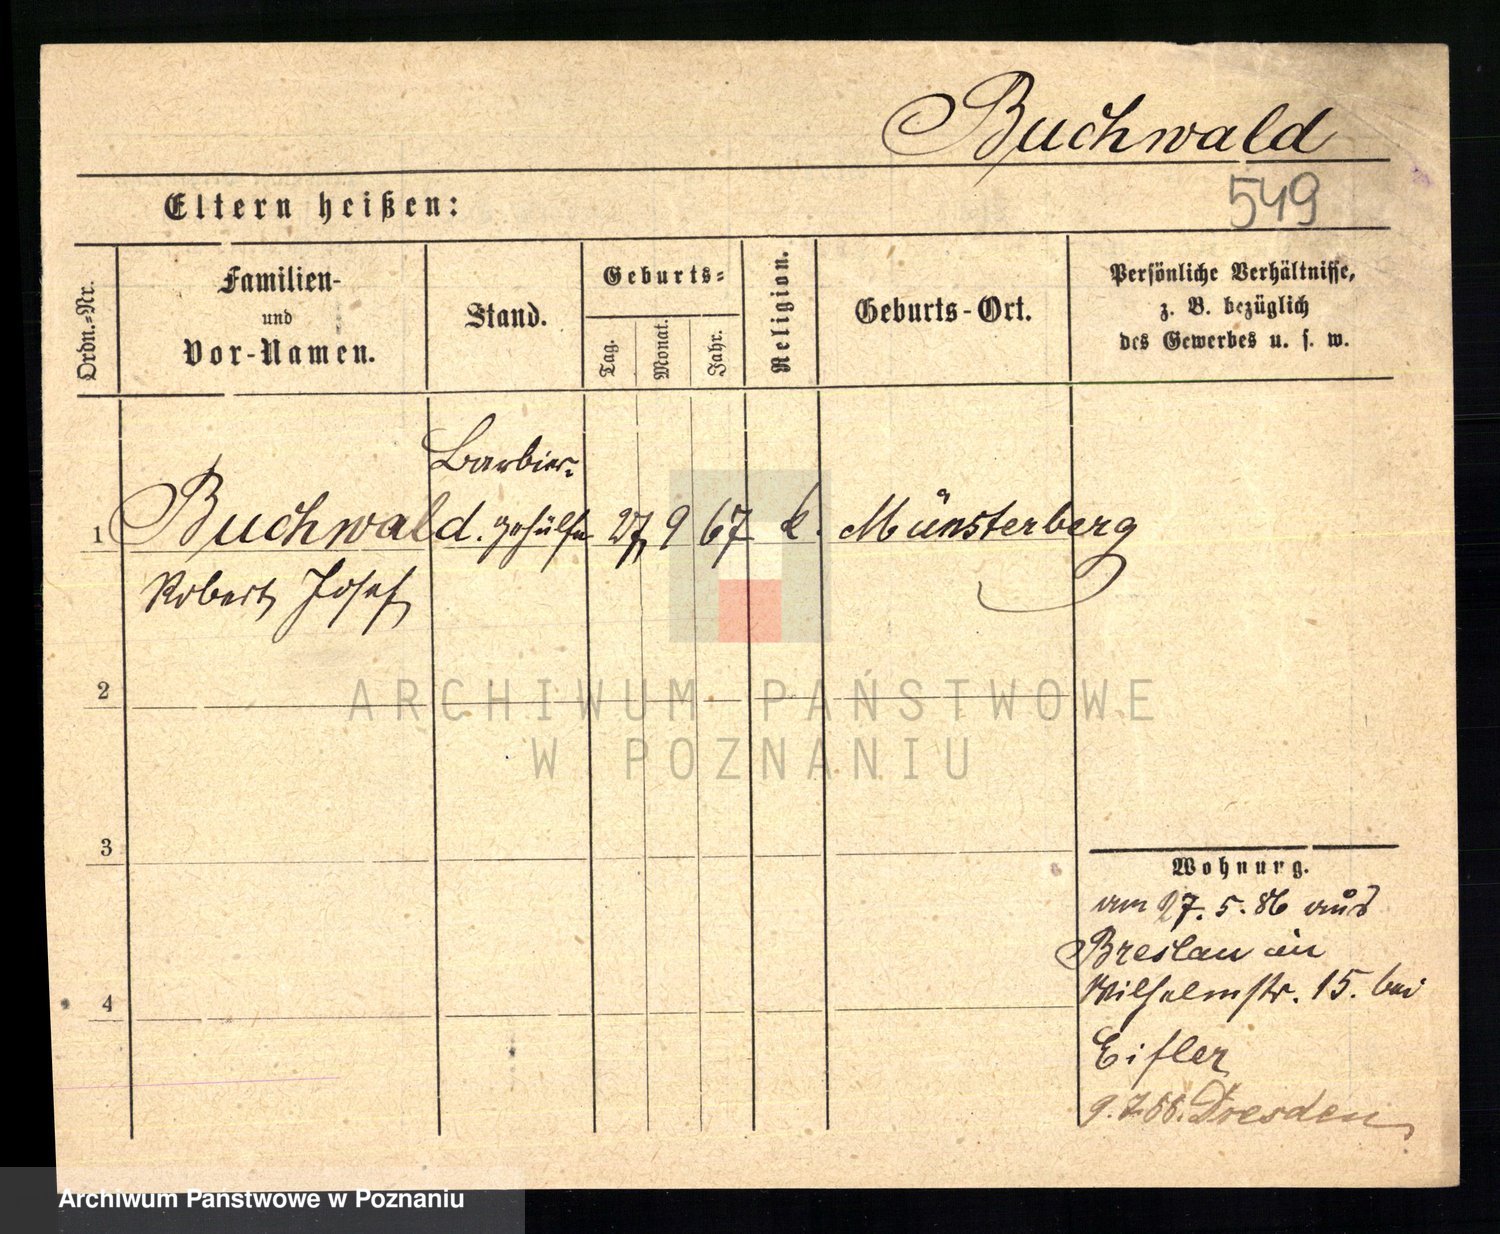 Buchwald
549
Eltern heißen:
Ordn.-Nr.
Familien-
und
Vor-Namen.
Stand.
Geburts-
Tag.
Monat.
Jahr.
Religion.
Geburts-Ort.
Persönliche Verhältnisse,
z. B. bezüglich
des Gewerbes u. s. w.
Barbier-
1 Buchwald. gehülfe 27 9 67 k. Münsterberg
Robert Josef
2
ARCHIWUM PAŃSTWOWE
W POZNANIU
3
Wohnung.
am 27. 5. 86 aus
Breslau in
Wilhelmstr. 15. bei
4
Eifler
9. 7. 86. Dresden
Archiwum Państwowe w Poznaniu